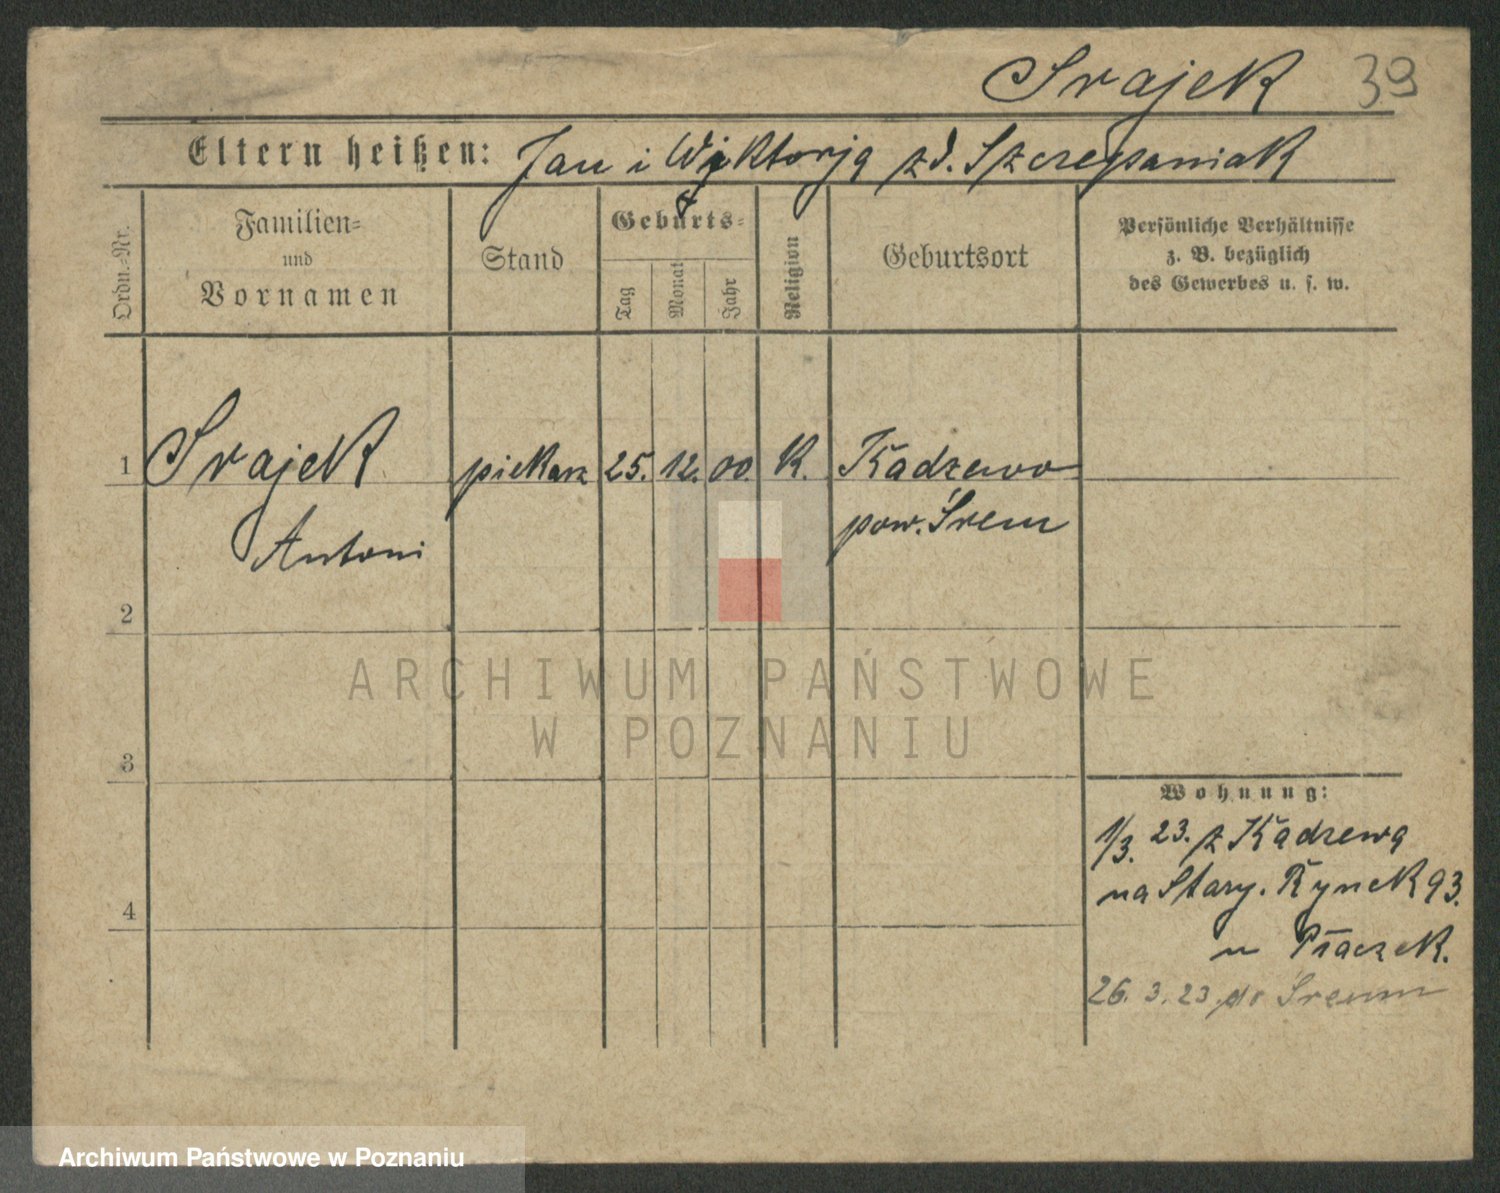 Srajek 39
Eltern heißen: Jan i Wiktorja zd. Szczepaniak
Ordn.-Nr.
Familien-
und
Vornamen
Stand
Geburts-
Tag
Monat
Jahr
Religion
Geburtsort
Persönliche Verhältnisse
z. B. bezüglich
des Gewerbes u. s. w.
1 Srajek piekarz 25. 12. 00. K. Kadzewo
Antoni pow. Śrem
2
3
4
Wohnung:
1/3. 23. z Kadzewa
na Stary. Rynek 93.
u Płaczek.
26. 3. 23. do Śremu
ARCHIWUM PAŃSTWOWE
W POZNANIU
Archiwum Państwowe w Poznaniu